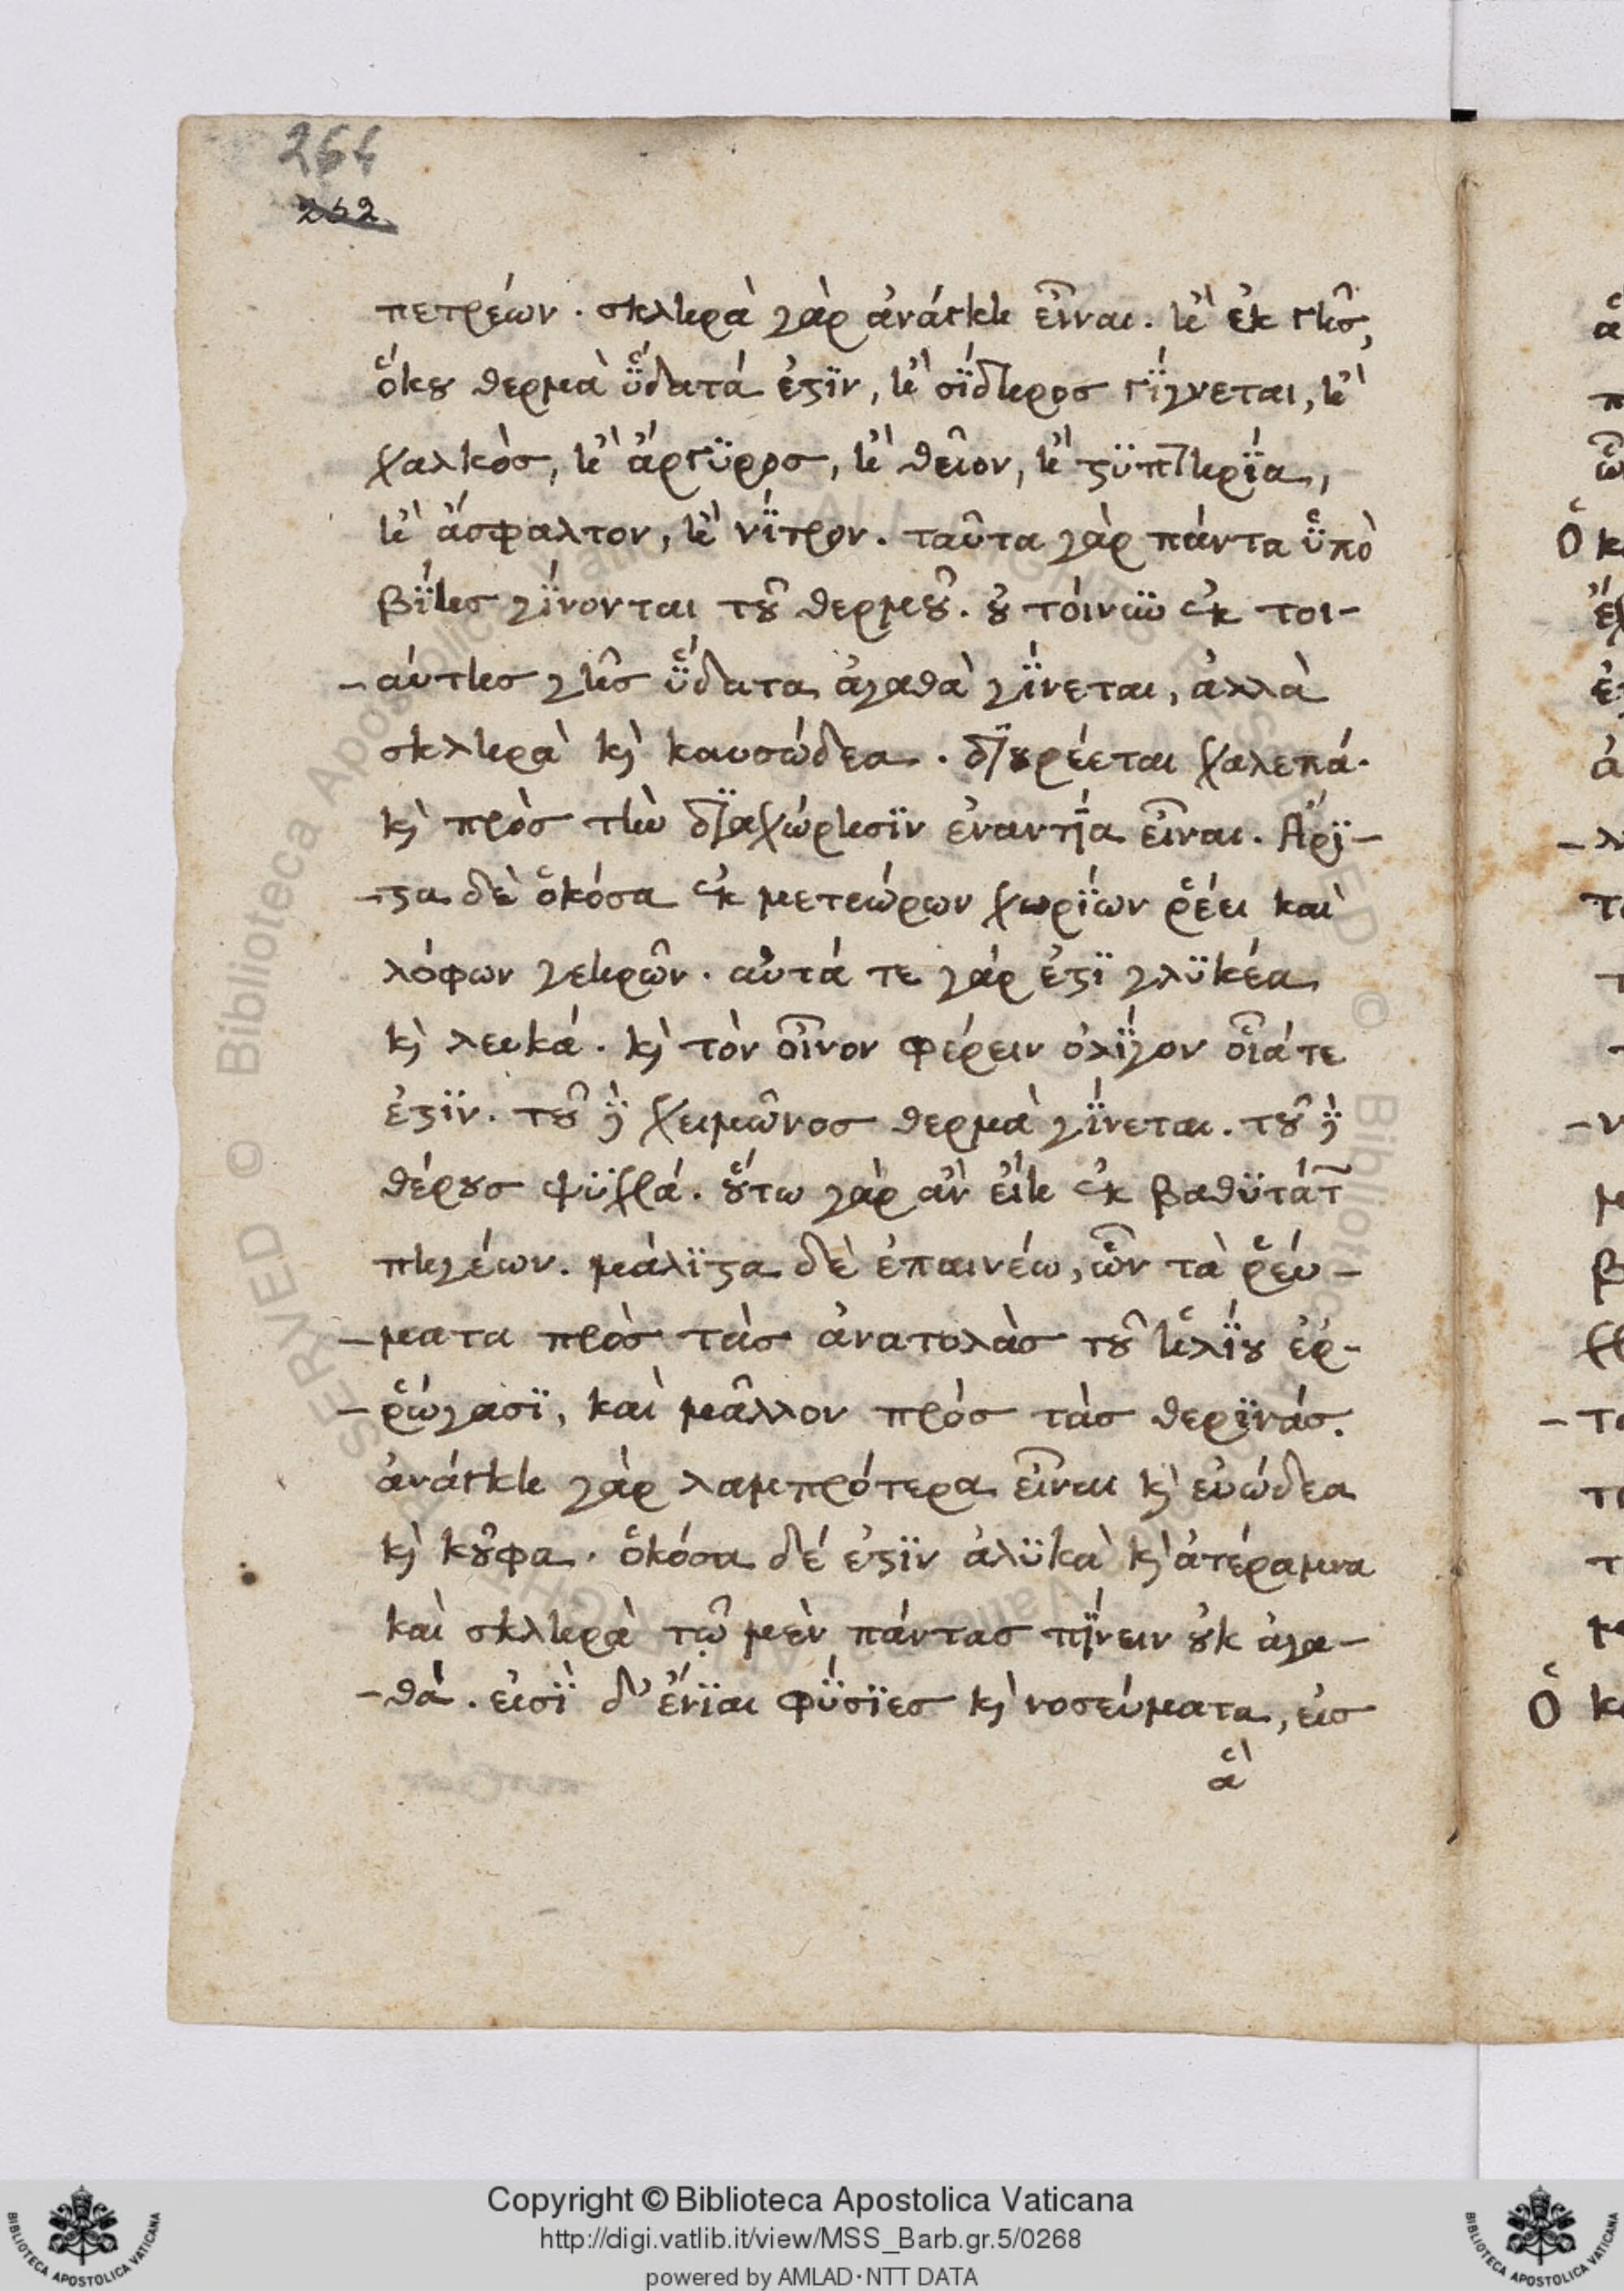 264
262
πετρέων. σκληρὰ γὰρ ἀνάγκη εἶναι. ἢ ἐκ γῆσ,
ὅκου θερμὰ ὕδατά ἐστϊν, ἢ σίδηρος γίγνεται, ἢ
χαλκὸσ, ἢ ἄργϋροσ, ἢ θεῖον, ἢ στϋπτηρία,
ἢ ἄσφαλτον, ἢ νίτρον. ταῦτα γὰρ πάντα ὑπὸ
βίησ γίνονται τοῦ θερμοῦ. οὐ τοίνυν ἐκ τοι-
-αύτησ γῆσ ὕδατα ἀγαθὰ γίνεται, ἀλλὰ
σκληρὰ κὶ καυσώδεα. δϊουρέεται χαλεπά.
κὶ πρὸσ τὴν δϊαχώρησϊν ἐναντία εἶναι. Ἄρϊ-
-στα δὲ ὁκόσα ἐκ μετεώρων χωρίων ῥέει καὶ
λόφων γεηρῶν. αὐτά τε γάρ ἐστϊ γλϋκέα
κὶ λευκά. κὶ τὸν οἶνον φέρειν ὀλίγον οἷάτε
ἐστϊν. τοῦ δὲ χειμῶνοσ θερμὰ γίνεται. τοῦ δὲ
θέρουσ ψϋχρά. οὕτω γὰρ ἂν εἴη ἐκ βαθϋτάτ
πηγέων. μάλϊστα δὲ ἐπαινέω, ὧν τὰ ῥεύ-
-ματα πρὸσ τὰσ ἀνατολὰσ τοῦ ἡλίου ἐρ-
-ῥώγασϊ, καὶ μᾶλλον πρόσ τὰσ θερϊνάσ.
ἀνάγκη γὰρ λαμπρότερα εἶναι κὶ εὐώδεα
κὶ κοῦφα. ὁκόσα δέ ἐστϊν ἁλϋκὰ κὶ ἀτέραμνα
καὶ σκληρὰ τῷ μὲν πάντασ πίνειν οὐκ ἀγα-
-θά. εἰσϊ δ' ἔνϊαι φύσϊες κὶ νοσεύματα, εἰσ
ἃ
Copyright © Biblioteca Apostolica Vaticana
http://digi.vatlib.it/view/MSS_Barb.gr.5/0268
powered by AMLAD·NTT DATA